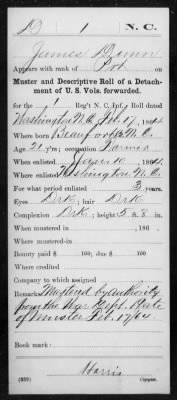 D 1 N.C.
James Dunn
Appears with rank of Pvt. on
Muster and Descriptive Roll of a Detachment of U. S. Vols. forwarded.
for the 1 Reg't N. C. Inf. Roll dated
Washington N.C. Feb. 17, 1864.
Where born Beaufort Co. N.C.
Age 21 y'rs; occupation Farmer
When enlisted Jan. 10, 1864.
Where enlisted Washington N.C.
For what period enlisted 3 years.
Eyes Drk; hair Drk
Complexion Drk; height 5 ft. 8 in.
When mustered in , 186 .
Where mustered in
Bounty paid $ 100; due $ 100
Where credited
Company to which assigned
Remarks: Mustered by authority
from the War Dept. Date
of muster Feb. 17/64
Book mark:
Harris
(339) Copyist.